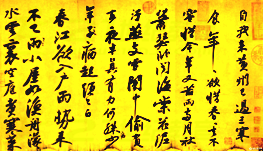 自我來黃州已過三寒
食年々欲惜春春去不
容惜今年又苦雨兩月秋
蕭瑟臥聞海棠花泥
汙燕支雪闇中偷負
去夜半真有力何殊少
年子病起頭已白
春江欲入戶雨勢來
不已雨小屋如漁舟濛々
水雲裏空庖煮寒菜